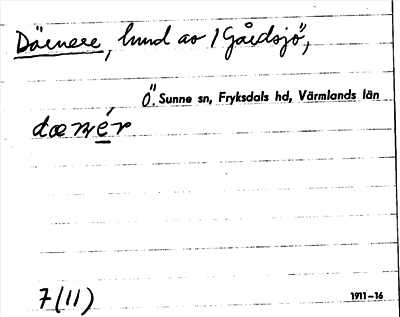 Däenere, hund av 1 Gårdsjö,
Ö. Sunne sn, Fryksdals hd, Värmlands län
7(11)
1911–16